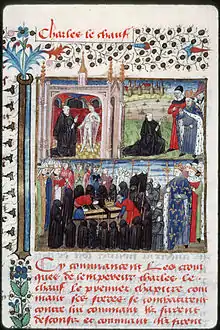 Charles le chauf
Cy commancent les cron
ques de lempereur charles le
chauf Le premier chapitre com
mant ses freres se combatirent
contre lui commant ilz furent
desconfis et commant ilz firent